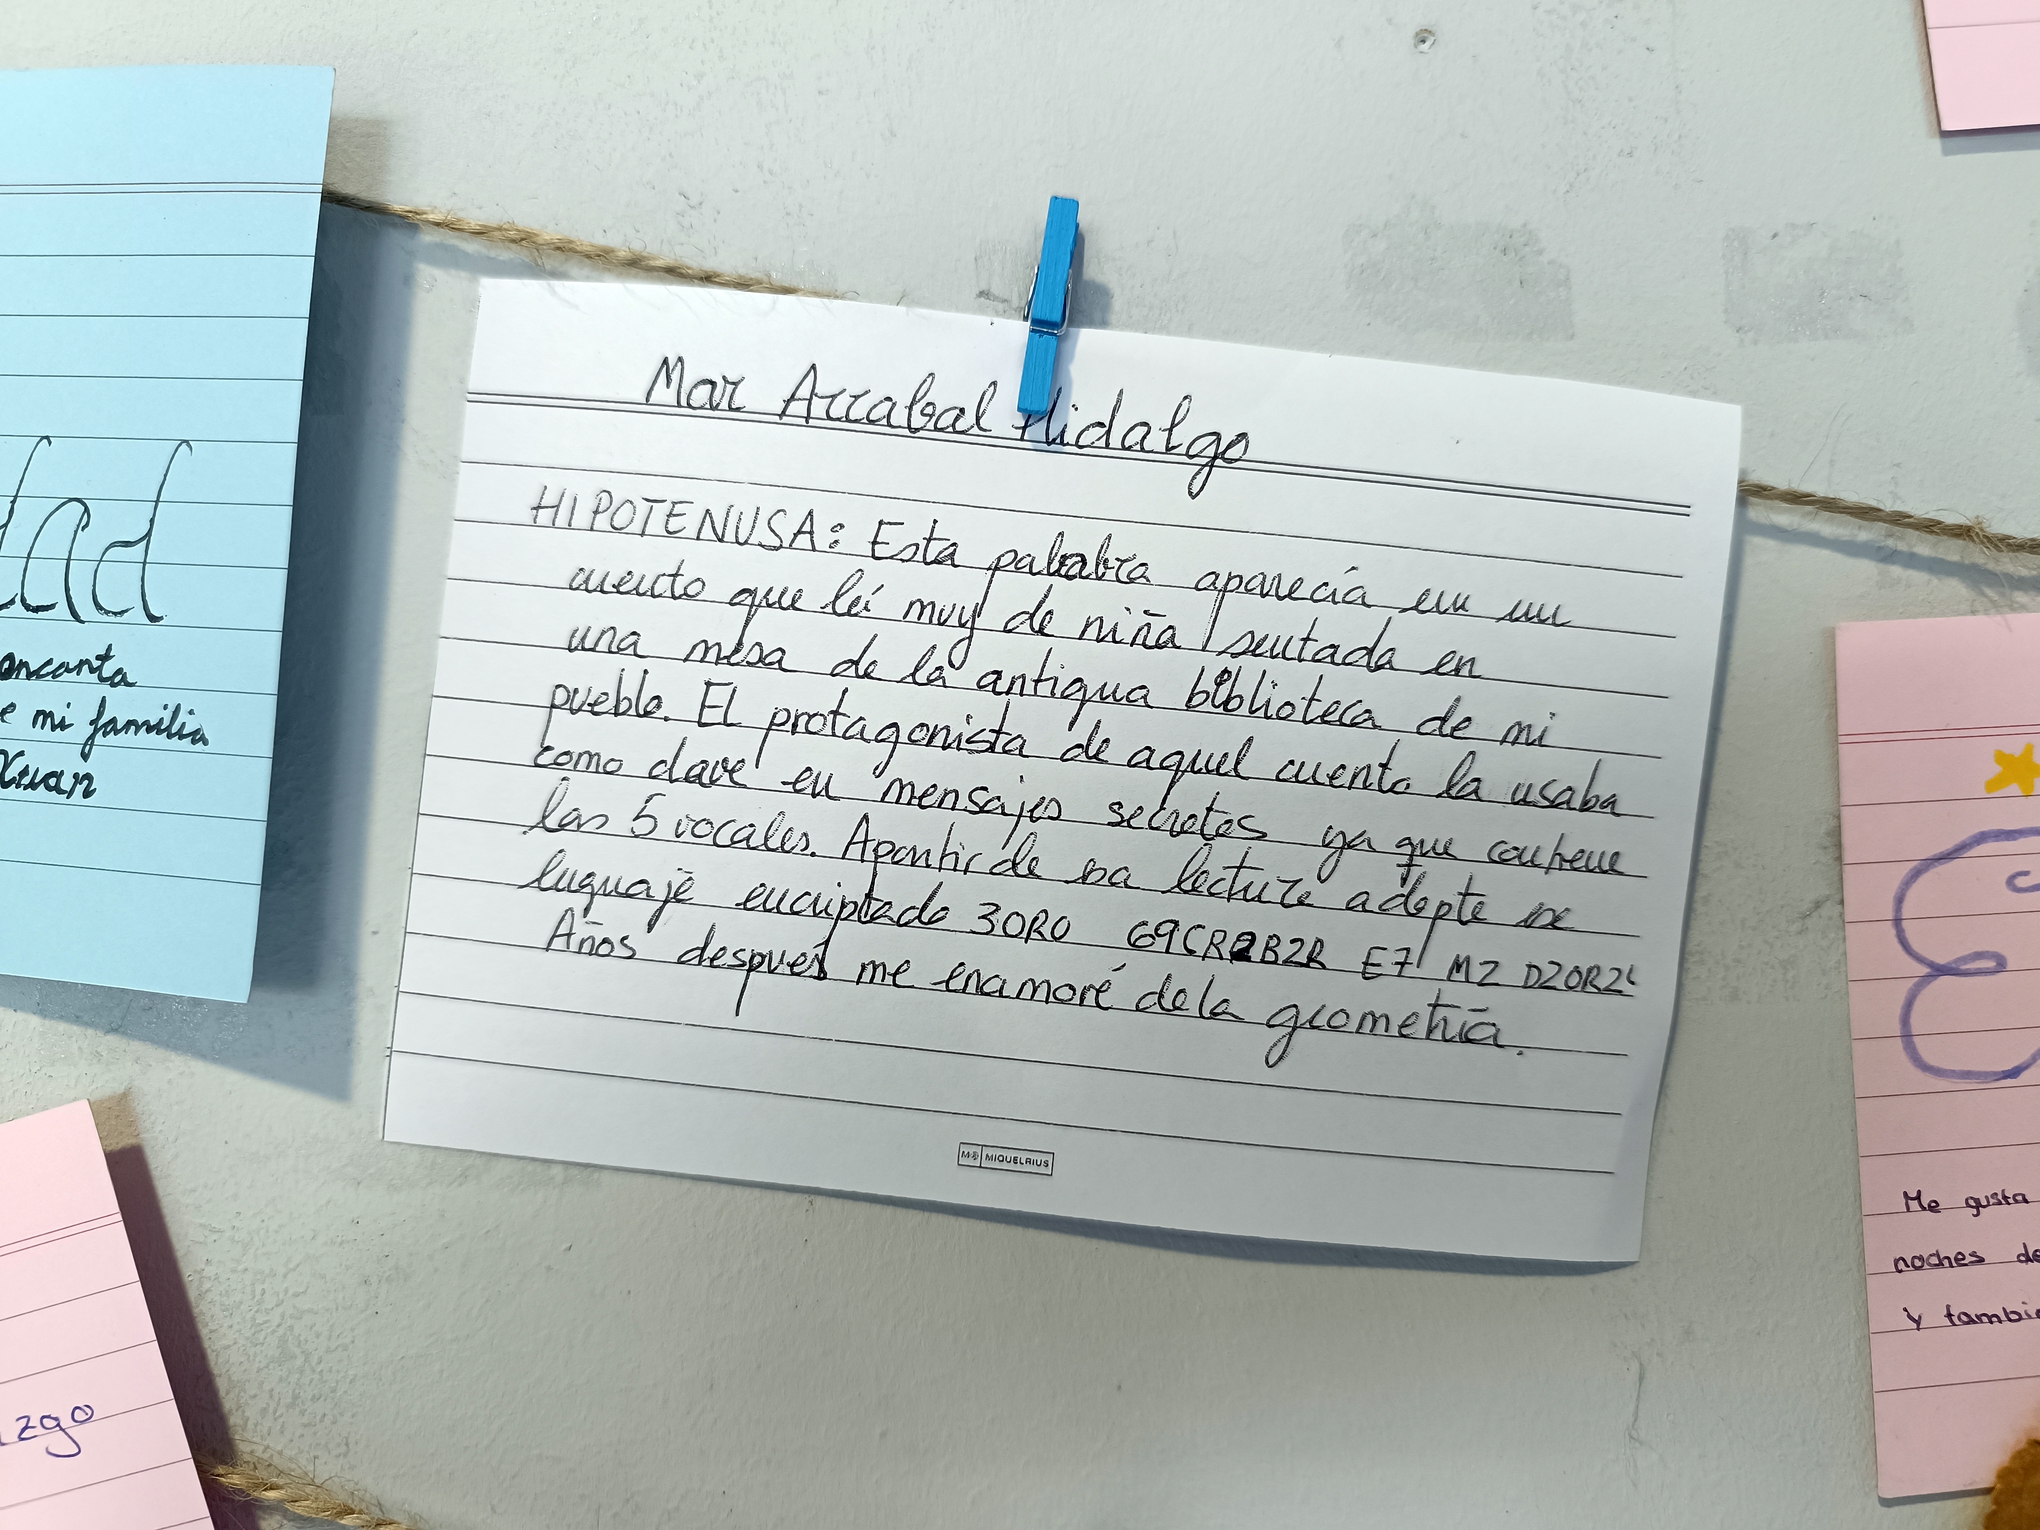 dad
encanta
e mi familia
Xuan
zgo
Mar Arrabal Hidalgo
HIPOTENUSA: Esta palabra aparecía en un
cuento que leí muy de niña sentada en
una mesa de la antigua biblioteca de mi
pueblo. El protagonista de aquel cuento la usaba
como clave en mensajes secretos ya que contiene
las 5 vocales. A partir de esa lectura adopté ese
lenguaje encriptado 3ORO 69CR2B2R E7 M2 D2OR2O
Años después me enamoré de la geometría.
MIQUELRIUS
Me gusta
noches de
y tambié